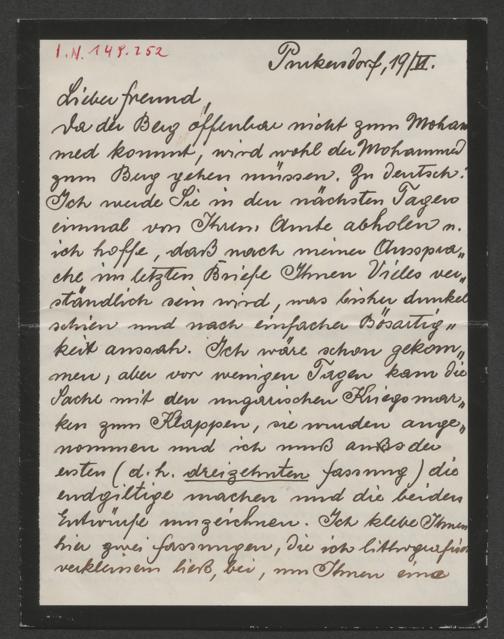 I.N. 149.252
Purkersdorf, 19/VI.
Lieber Freund,
Da der Berg offenbar nicht zum Moham
med kommt, wird wohl der Mohammed
zum Berg gehen müssen. Zu deutsch:
Ich werde Sie in den nächsten Tagen
einmal von Ihrem Amte abholen u.
ich hoffe, daß nach meiner Ausspra„
che im letzten Briefe Ihnen Vieles ver„
ständlich sein wird, was bisher dunkel
schien und nach einfacher Bösartig„
keit aussah. Ich wäre schon gekom„
men, aber vor wenigen Tagen kam die
Sache mit den ungarischen Kriegsmar„
ken zum Klappen, sie wurden ange„
nommen und ich muß aus der
ersten (d. h. dreizehnten Fassung) die
endgiltige machen und die beiden
Entwürfe umzeichnen. Ich klebe Ihnen
hier zwei Fassungen, die ich lithografisch
verkleinern ließ, bei, um Ihnen eine